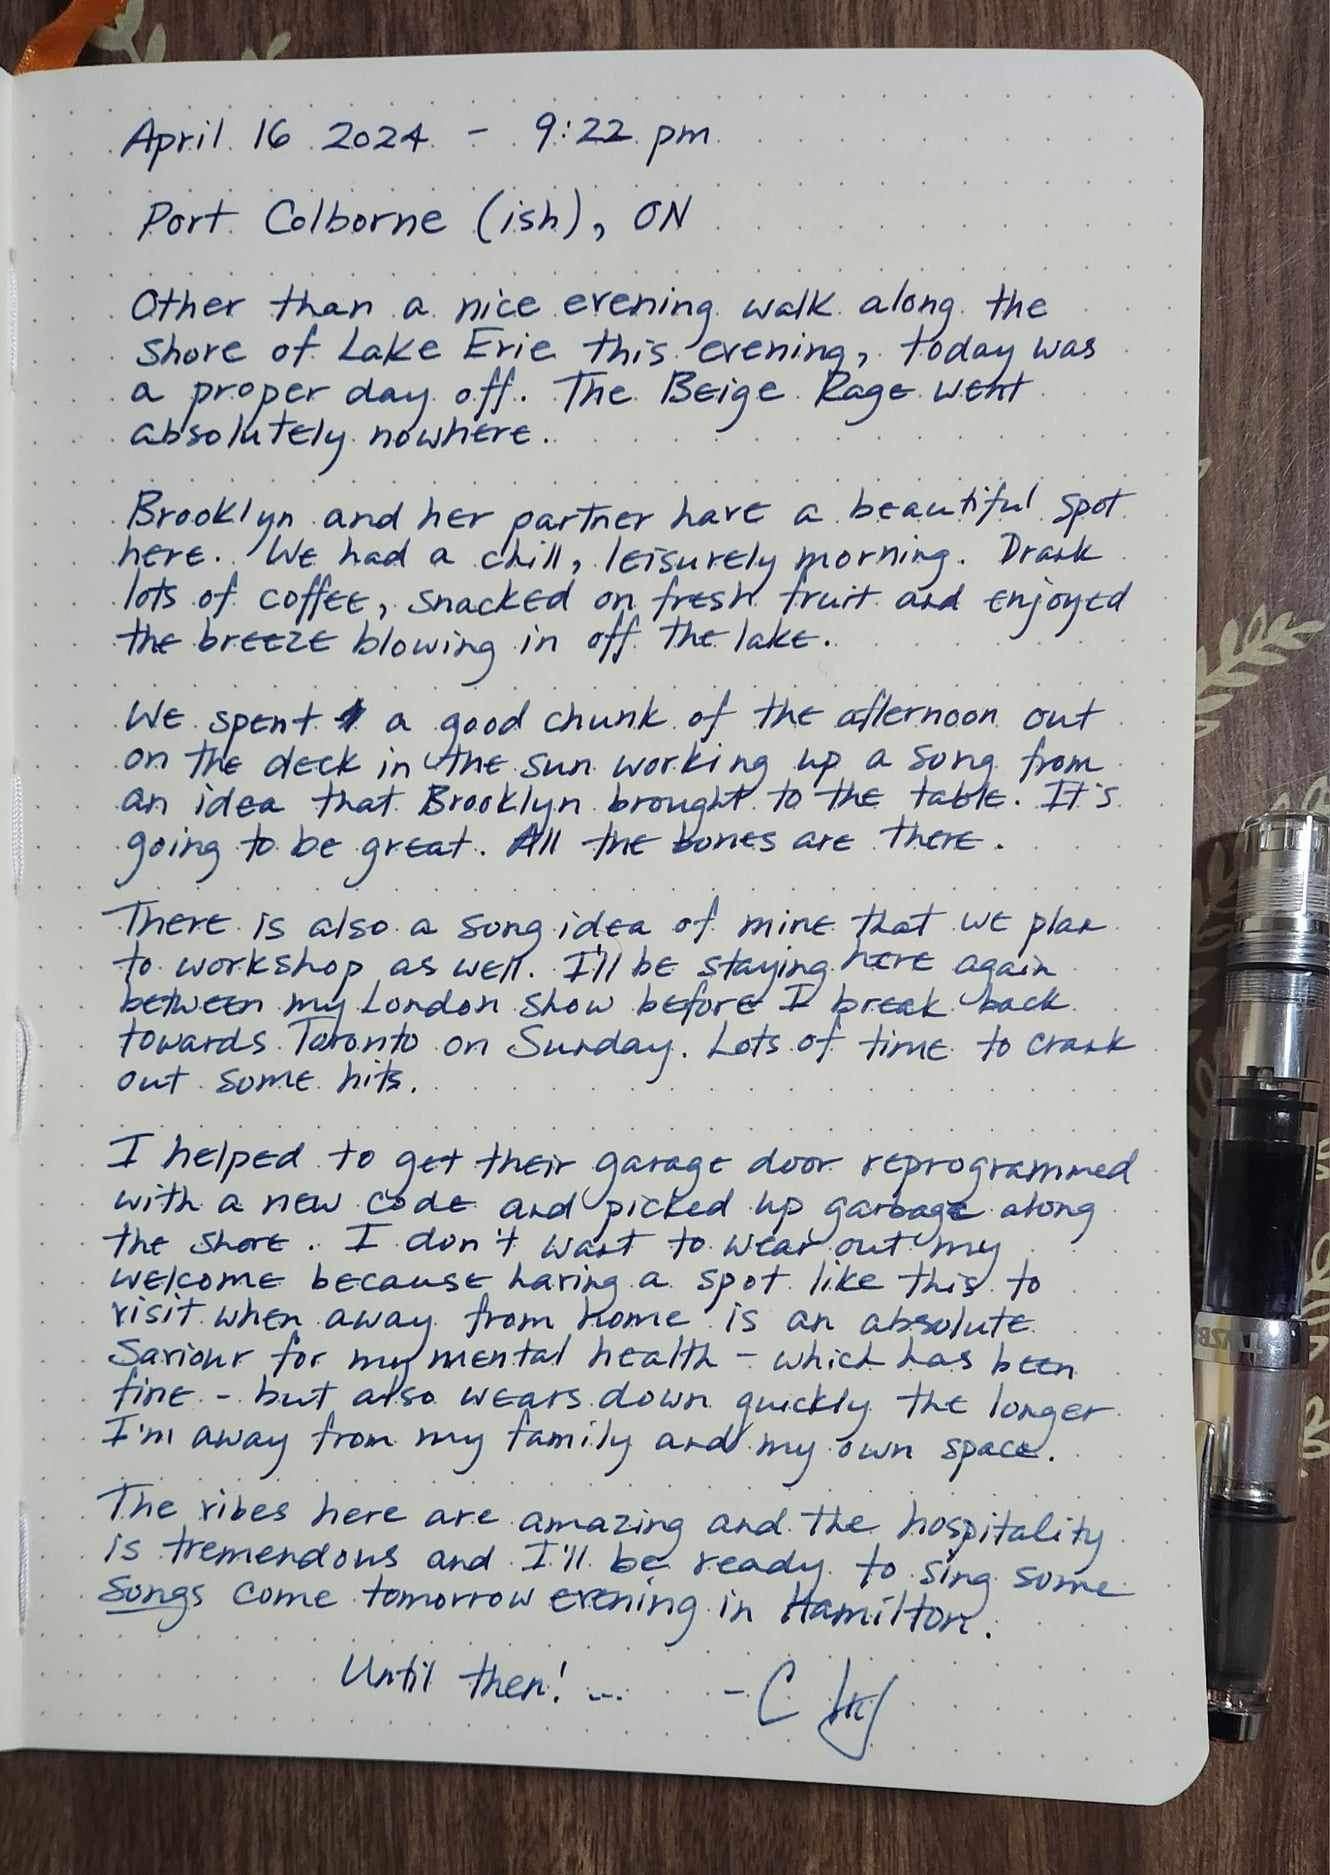 April 16 2024 - 9:22 pm
Port Colborne (ish), ON
Other than a nice evening walk along the
shore of Lake Erie this evening, today was
a proper day off. The Beige Rage went
absolutely nowhere.
Brooklyn and her partner have a beautiful spot
here. We had a chill, leisurely morning. Drank
lots of coffee, snacked on fresh fruit and enjoyed
the breeze blowing in off the lake.
We spent a good chunk of the afternoon out
on the deck in the sun working up a song from
an idea that Brooklyn brought to the table. It's
going to be great. All the bones are there.
There is also a song idea of mine that we plan
to workshop as well. I'll be staying here again
between my London show before I break back
towards Toronto on Sunday. Lots of time to crank
out some hits.
I helped to get their garage door reprogrammed
with a new code and picked up garbage along
the shore. I don't want to wear out my
welcome because having a spot like this to
visit when away from home is an absolute
Saviour for my mental health - which has been
fine - but also wears down quickly the longer
I'm away from my family and my own space.
The vibes here are amazing and the hospitality
is tremendous and I'll be ready to sing some
songs come tomorrow evening in Hamilton.
Until then! ... - C